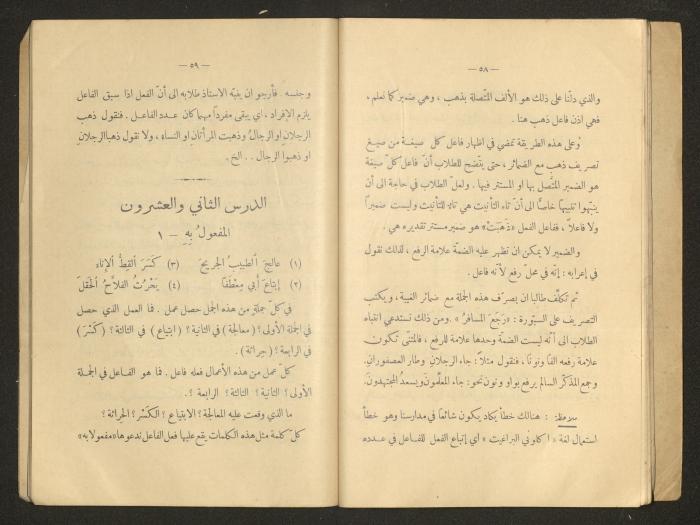 — ٥٨ —
والذي دلّنا على ذلك هو الألف المتّصلة بذهب ، وهي ضمير كما نعلم ،
فهي اذن فاعل ذهب هنا .
وعلى هذه الطريقة نمضي في اظهار فاعل كل صيغة من صيغ
تصريف ذهب مع الضمائر ، حتى يتّضح للطلاب أنّ فاعل كلّ صيغة
هو الضمير المتّصل بها او المستتر فيها . ولعلّ الطلاب في حاجة الى أن
ينبّهوا تنبيهاً خاصّاً الى أنّ تاء التأنيث هي تاء للتأنيث وليست ضميراً
ولا فاعلاً ، ففاعل الفعل «ذَهَبَتْ» هو ضمير مستتر تقديره هي .
والضمير لا يمكن ان تظهر عليه الضمّة علامة الرفع ، لذلك نقول
في إعرابه : إنّه في محلّ رفع لأنّه فاعل .
ثم نكلّف طالبا ان يصرّف هذه الجملة مع ضمائر الغيبة ، ويكتب
التصريف على السبّورة : «رَجَعَ المسافرُ» . ومن ذلك نستدعي انتباه
الطلاب الى أنّه ليست الضمّة وحدها علامة للرفع ، فالمثنّى تكون
علامة رفعه ألفاً ونوناً ، فنقول مثلاً : جاء الرجلانِ وطار العصفورانِ .
وجمع المذكّر السالم يرفع بواو ونون نحو : جاء المعلّمونَ ويسعدُ المجتهدونَ .
ملاحظة : هنالك خطأ يكاد يكون شائعاً في مدارسنا وهو خطأ
استعمال لغة «اكلوني البراغيث» اي إتباع الفعل للفاعل في عدده
— ٥٩ —
وجنسه . فأرجو ان ينبّه الاستاذ طلابه الى أنّ الفعل اذا سبق الفاعل
يلزم الإفراد ، اي يبقى مفرداً مهما كان عدد الفاعل . فنقول ذهب
الرجلانِ او الرجالُ وذهبت المرأتانِ او النساء ، ولا نقول ذهبا الرجلانِ
او ذهبوا الرجال . . الخ .
الدرس الثاني والعشرون
المفعولُ بِهِ — ١
(١) عالجَ الطبيبُ الجريحَ (٣) كَسَرَ القِطُّ الإناءَ
(٢) إبتاعَ أبي مِعْطَفاً (٤) يَحْرُثُ الفلاّحُ الحقلَ
في كلّ جملة من هذه الجمل حصل عمل . فما العمل الذي حصل
في الجملة الأولى ؟ (معالجة) في الثانية ؟ (ابتياع) في الثالثة ؟ (كَسْرٌ)
في الرابعة ؟ (حراثة) .
كلّ عمل من هذه الأعمال فعله فاعل . فما هو الفاعل في الجملة
الأولى ؟ الثانية ؟ الثالثة ؟ الرابعة ؟ .
ما الذي وقعت عليه المعالجة ؟ الابتياع ؟ الكَسْر ؟ الحراثة ؟
كلّ كلمة مثل هذه الكلمات يقع عليها فعل الفاعل ندعوها «مفعولا به»